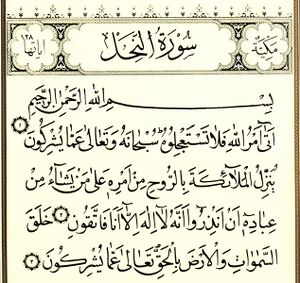 مكية سورة النحل اياتها ١٢٨
بسم الله الرحمن الرحيم
اَتٰٓى اَمْرُ اللّٰهِ فَلَا تَسْتَعْجِلُوهُ سُبْحَانَهُ وَتَعَالٰى عَمَّا يُشْرِكُونَ ١
يُنَزِّلُ الْمَلٰٓئِكَةَ بِالرُّوحِ مِنْ اَمْرِهِ عَلٰى مَنْ يَشَٓاءُ مِنْ
عِبَادِهِ اَنْ اَنْذِرُٓوا اَنَّهُ لَٓا اِلٰهَ اِلَّٓا اَنَا۬ فَاتَّقُونِ ٢ خَلَقَ
السَّمٰوَاتِ وَالْاَرْضَ بِالْحَقِّ تَعَالٰى عَمَّا يُشْرِكُونَ ٣